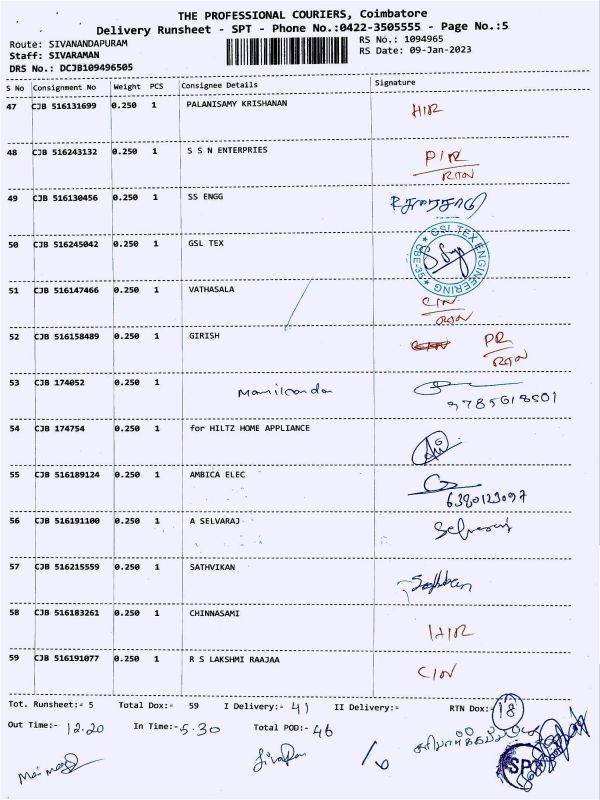 THE PROFESSIONAL COURIERS, Coimbatore
Delivery Runsheet - SPT - Phone No.:0422-3505555 - Page No.:5
Route: SIVANANDAPURAM RS No.: 1094965
Staff: SIVARAMAN RS Date: 09-Jan-2023
DRS No.: DCJB109496505
S No Consignment No Weight PCS Consignee Details Signature
47 CJB 516131699 0.250 1 PALANISAMY KRISHANAN
48 CJB 516243132 0.250 1 S S N ENTERPRIES P/R
RTN
49 CJB 516130456 0.250 1 SS ENGG
50 CJB 516245042 0.250 1 GSL TEX GSL TEX ENGINEERING CBE-35
51 CJB 516147466 0.250 1 VATHASALA
RTN
52 CJB 516158489 0.250 1 GIRISH PR
RTN
53 CJB 174052 0.250 1 Manikanda
9785618501
54 CJB 174754 0.250 1 for HILTZ HOME APPLIANCE
55 CJB 516189124 0.250 1 AMBICA ELEC
6380123097
56 CJB 516191100 0.250 1 A SELVARAJ Selvaraj
57 CJB 516215559 0.250 1 SATHVIKAN
58 CJB 516183261 0.250 1 CHINNASAMI
59 CJB 516191077 0.250 1 R S LAKSHMI RAAJAA
Tot. Runsheet:- 5 Total Dox:- 59 I Delivery:- 41 II Delivery:- RTN Dox:- 18
Out Time:- 12.20 In Time:- 5.30 Total POD:- 46
SP